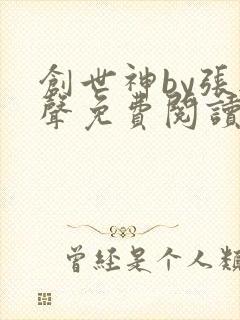 創世神by張
聲免費閱讀
曾經是个人類